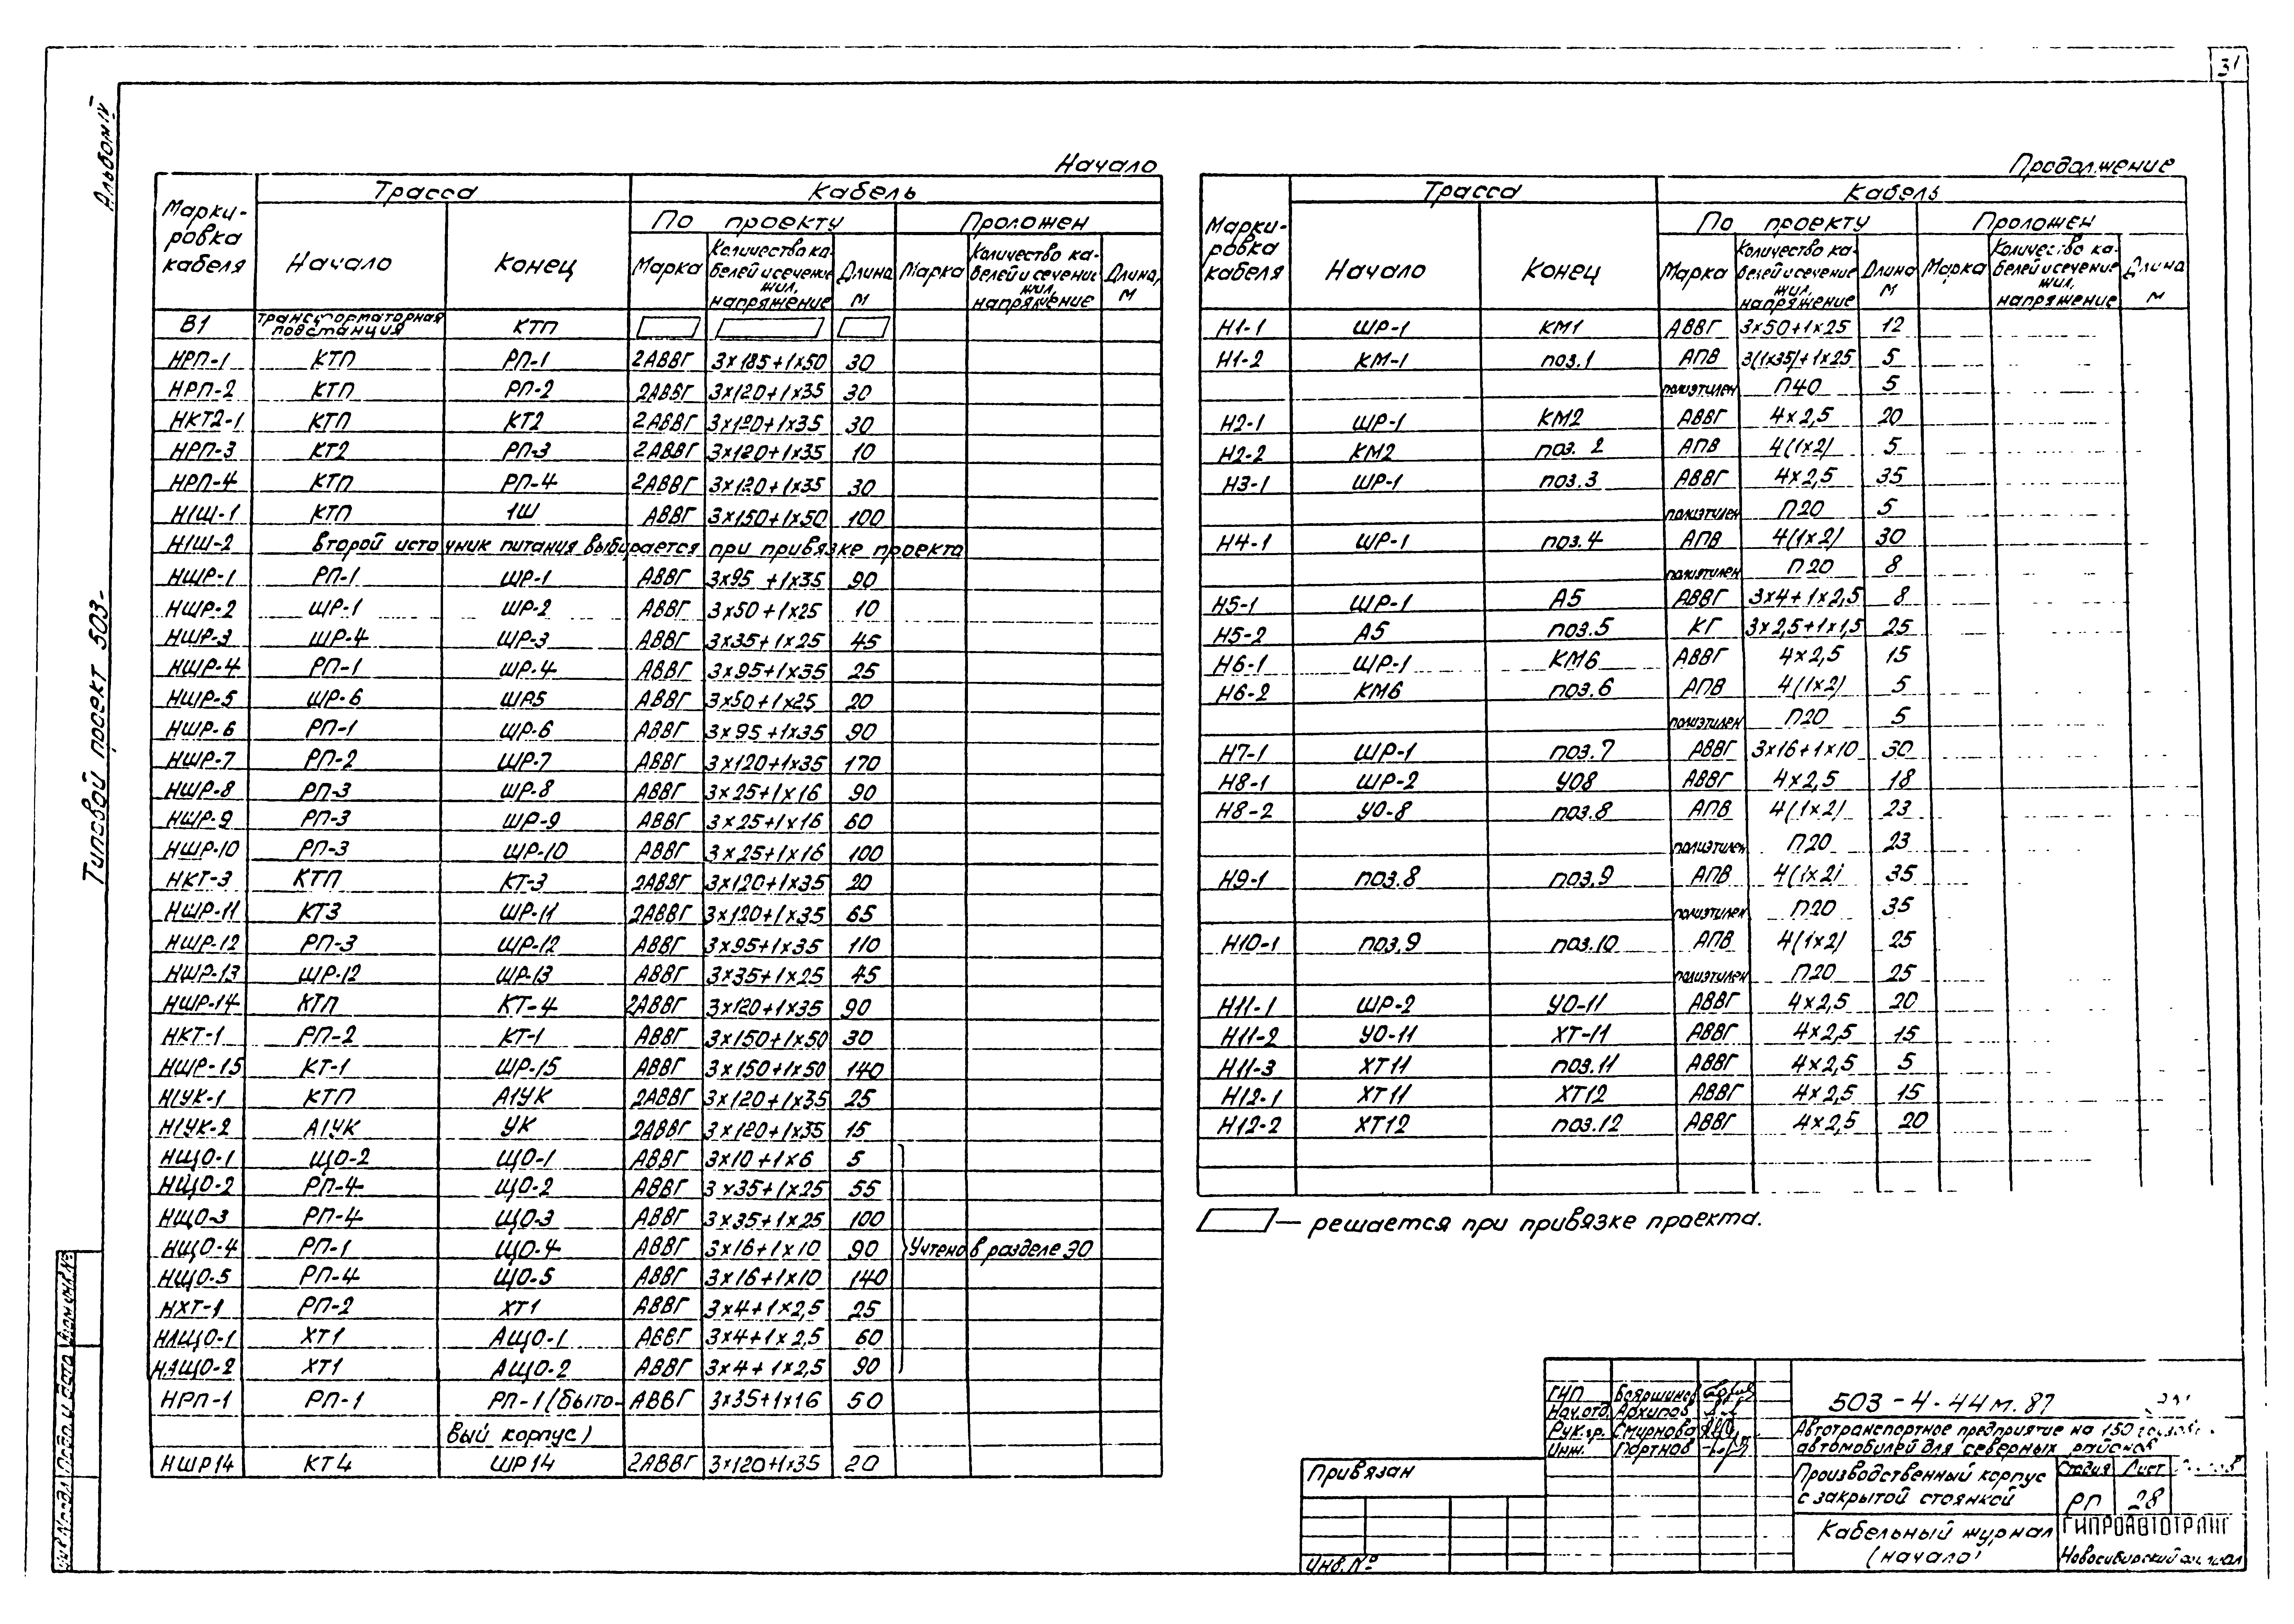 31
Альбом IV
Типовой проект 503-
Начало
Марки-ровка кабеля | Трасса | Кабель
Начало | Конец | По проекту | Проложен
Марка | Количество кабелей и сечение жил, напряжение | Длина м | Марка | Количество кабелей и сечение жил, напряжение | Длина, м
В1 | Трансформаторная подстанция | КТП
НРП-1 | КТП | РП-1 | 2АВВГ | 3×185+1×50 | 30
НРП-2 | КТП | РП-2 | 2АВВГ | 3×120+1×35 | 30
НКТ2-1 | КТП | КТ2 | 2АВВГ | 3×120+1×35 | 30
НРП-3 | КТ2 | РП-3 | 2АВВГ | 3×120+1×35 | 10
НРП-4 | КТП | РП-4 | 2АВВГ | 3×120+1×35 | 30
Н1Ш-1 | КТП | 1Ш | АВВГ | 3×150+1×50 | 100
Н1Ш-2 | второй источник питания выбирается при привязке проекта
НШР-1 | РП-1 | ШР-1 | АВВГ | 3×95+1×35 | 90
НШР-2 | ШР-1 | ШР-2 | АВВГ | 3×50+1×25 | 10
НШР-3 | ШР-4 | ШР-3 | АВВГ | 3×35+1×25 | 45
НШР-4 | РП-1 | ШР-4 | АВВГ | 3×95+1×35 | 25
НШР-5 | ШР-6 | ШР5 | АВВГ | 3×50+1×25 | 20
НШР-6 | РП-1 | ШР-6 | АВВГ | 3×95+1×35 | 90
НШР-7 | РП-2 | ШР-7 | АВВГ | 3×120+1×35 | 170
НШР-8 | РП-3 | ШР-8 | АВВГ | 3×25+1×16 | 90
НШР-9 | РП-3 | ШР-9 | АВВГ | 3×25+1×16 | 60
НШР-10 | РП-3 | ШР-10 | АВВГ | 3×25+1×16 | 100
НКТ-3 | КТП | КТ-3 | 2АВВГ | 3×120+1×35 | 20
НШР-11 | КТ3 | ШР-11 | 2АВВГ | 3×120+1×35 | 65
НШР-12 | РП-3 | ШР-12 | АВВГ | 3×95+1×35 | 110
НШР-13 | ШР-12 | ШР-13 | АВВГ | 3×35+1×25 | 45
НШР-14 | КТП | КТ-4 | 2АВВГ | 3×120+1×35 | 90
НКТ-1 | РП-2 | КТ-1 | АВВГ | 3×150+1×50 | 30
НШР-15 | КТ-1 | ШР-15 | АВВГ | 3×150+1×50 | 140
Н1УК-1 | КТП | А1УК | 2АВВГ | 3×120+1×35 | 25
Н1УК-2 | А1УК | УК | 2АВВГ | 3×120+1×35 | 15
НЩО-1 | ЩО-2 | ЩО-1 | АВВГ | 3×10+1×6 | 5
НЩО-2 | РП-4 | ЩО-2 | АВВГ | 3×35+1×25 | 55
НЩО-3 | РП-4 | ЩО-3 | АВВГ | 3×35+1×25 | 100
НЩО-4 | РП-1 | ЩО-4 | АВВГ | 3×16+1×10 | 90 | Учтено в разделе ЭО
НЩО-5 | РП-4 | ЩО-5 | АВВГ | 3×16+1×10 | 140
НХТ-1 | РП-2 | ХТ1 | АВВГ | 3×4+1×2,5 | 25
НАЩО-1 | ХТ1 | АЩО-1 | АВВГ | 3×4+1×2,5 | 60
НАЩО-2 | ХТ1 | АЩО-2 | АВВГ | 3×4+1×2,5 | 90
НРП-1 | РП-1 | РП-1 (быто- | АВВГ | 3×35+1×16 | 50
вый корпус)
НШР14 | КТ4 | ШР14 | 2АВВГ | 3×120+1×35 | 20
Продолжение
Марки-ровка кабеля | Трасса | Кабель
Начало | Конец | По проекту | Проложен
Марка | Количество кабелей и сечение жил, напряжение | Длина м | Марка | Количество кабелей и сечение жил, напряжение | Длина м
Н1-1 | ШР-1 | КМ1 | АВВГ | 3×50+1×25 | 12
Н1-2 | КМ-1 | поз.1 | АПВ | 3(1×35)+1×25 | 5
полиэтилен | П40 | 5
Н2-1 | ШР-1 | КМ2 | АВВГ | 4×2,5 | 20
Н2-2 | КМ2 | поз. 2 | АПВ | 4(1×2) | 5
Н3-1 | ШР-1 | поз.3 | АВВГ | 4×2,5 | 35
полиэтилен | П20 | 5
Н4-1 | ШР-1 | поз.4 | АПВ | 4(1×2) | 30
полиэтилен | П20 | 8
Н5-1 | ШР-1 | А5 | АВВГ | 3×4+1×2,5 | 8
Н5-2 | А5 | поз.5 | КГ | 3×2,5+1×1,5 | 25
Н6-1 | ШР-1 | КМ6 | АВВГ | 4×2,5 | 15
Н6-2 | КМ6 | поз.6 | АПВ | 4(1×2) | 5
полиэтилен | П20 | 5
Н7-1 | ШР-1 | поз.7 | АВВГ | 3×16+1×10 | 30
Н8-1 | ШР-2 | УО8 | АВВГ | 4×2,5 | 18
Н8-2 | УО-8 | поз.8 | АПВ | 4(1×2) | 23
полиэтилен | П20 | 23
Н9-1 | поз.8 | поз.9 | АПВ | 4(1×2) | 35
полиэтилен | П20 | 35
Н10-1 | поз.9 | поз.10 | АПВ | 4(1×2) | 25
полиэтилен | П20 | 25
Н11-1 | ШР-2 | УО-11 | АВВГ | 4×2,5 | 20
Н11-2 | УО-11 | ХТ-11 | АВВГ | 4×2,5 | 15
Н11-3 | ХТ11 | поз.11 | АВВГ | 4×2,5 | 5
Н12-1 | ХТ11 | ХТ12 | АВВГ | 4×2,5 | 15
Н12-2 | ХТ12 | поз.12 | АВВГ | 4×2,5 | 20
— решается при привязке проекта.
ГИП Бояршинов
Нач.отд. Архипов
Рук.гр. Смирнова
Инж. Портнов
503-4-44м.87
Автотранспортное предприятие на 150
автомобилей для северных районов
Производственный корпус
с закрытой стоянкой
Стадия | Лист
РП | 28
Кабельный журнал
(начало)
ГИПРОАВТОТРАНС
Новосибирский филиал
Привязан
Инв.№